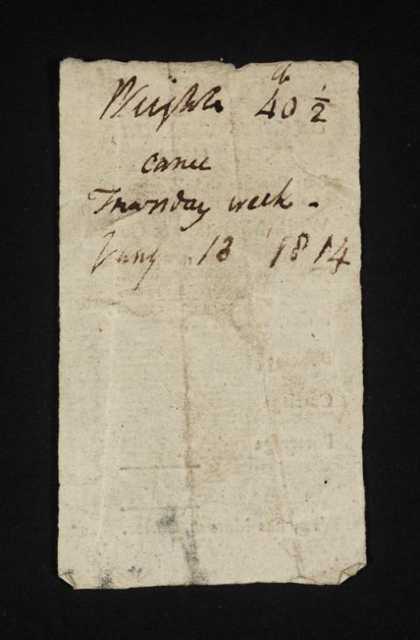 Weight 40 ½ lb
came
Thursday week.
Jany 13 1814